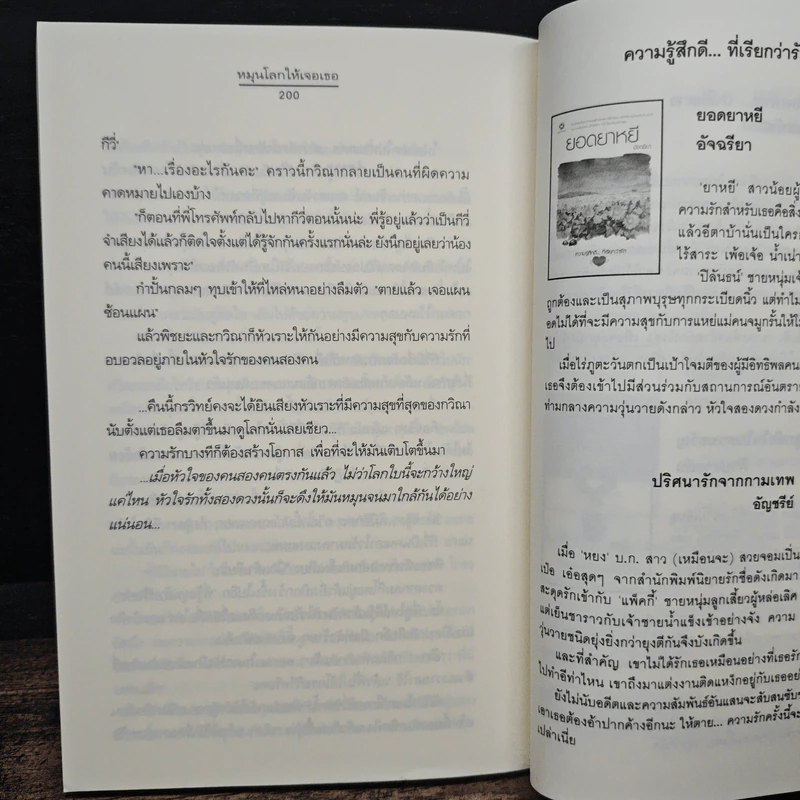 หมุนโลกให้เจอเธอ
200
กีวี่"
"หา...เรื่องอะไรกันคะ" คราวนี้กวิณากลายเป็นคนที่ผิดความ
คาดหมายไปเองบ้าง
"ก็ตอนที่พี่โทรศัพท์กลับไปหากีวี่ตอนนั้นน่ะ พี่รู้อยู่แล้วว่าเป็นกีวี่
จำเสียงได้แล้วก็ติดใจตั้งแต่ได้รู้จักกันครั้งแรกนั่นล่ะ ยังนึกอยู่เลยว่าน้อง
คนนี้เสียงเพราะ"
กำปั้นกลมๆ ทุบเข้าให้ที่ไหล่หนาอย่างลืมตัว "ตายแล้ว เจอแผน
ซ้อนแผน"
แล้วพิชยะและกวิณาก็หัวเราะให้กันอย่างมีความสุขกับความรักที่
อบอวลอยู่ภายในหัวใจรักของคนสองคน
...คืนนี้กรวิทย์คงจะได้ยินเสียงหัวเราะที่มีความสุขที่สุดของกวิณา
นับตั้งแต่เธอลืมตาขึ้นมาดูโลกนั่นเลยเชียว...
ความรักบางทีก็ต้องสร้างโอกาส เพื่อที่จะให้มันเติบโตขึ้นมา
...เมื่อหัวใจของคนสองคนตรงกันแล้ว ไม่ว่าโลกใบนี้จะกว้างใหญ่
แค่ไหน หัวใจรักทั้งสองดวงนั้นก็จะดึงให้มันหมุนจนมาใกล้กันได้อย่าง
แน่นอน...
ความรู้สึกดี... ที่เรียกว่ารั
ยอดยาหยี
ยอดยาหยี
อัจฉรียา
'ยาหยี' สาวน้อยผู้
ความรักสำหรับเธอคือสิ่ง
แล้วอีตาบ้านั่นเป็นใคร
ไร้สาระ เพ้อเจ้อ น้ำเน่า
'ปิลันธน์' ชายหนุ่มเจ้
ถูกต้องและเป็นสุภาพบุรุษทุกกระเบียดนิ้ว แต่ทำไม
อดไม่ได้ที่จะมีความสุขกับการแหย่แม่คนจมูกรั้นให้โม
ไป
เมื่อไร่ภูตะวันตกเป็นเป้าโจมตีของผู้มีอิทธิพลคน
เธอจึงต้องเข้าไปมีส่วนร่วมกับสถานการณ์อันตราย
ท่ามกลางความวุ่นวายดังกล่าว หัวใจสองดวงกำลัง
ปริศนารักจากกามเทพ
อัญชรีย์
เมื่อ 'หยง' บ.ก. สาว (เหมือนจะ) สวยจอมเปิ่น
เป๋อ เอ๋อสุดๆ จากสำนักพิมพ์นิยายรักชื่อดังเกิดมา
สะดุดรักเข้ากับ 'แพ็คกี้' ชายหนุ่มลูกเสี้ยวผู้หล่อเลิศ
แต่เย็นชาราวกับเจ้าชายน้ำแข็งเข้าอย่างจัง ความ
วุ่นวายชนิดยุ่งยิ่งกว่ายุงตีกันจึงบังเกิดขึ้น
และที่สำคัญ เขาไม่ได้รักเธอเหมือนอย่างที่เธอรัก
ไปทำอีท่าไหน เขาถึงมาแต่งงานติดแหง็กอยู่กับเธออย่
ยังไม่นับอดีตและความสัมพันธ์อันแสนจะสับสนซับซ
เอาเธอต้องอ้าปากค้างอีกนะ ให้ตาย... ความรักครั้งนี้จะ
เปล่าเนี่ย